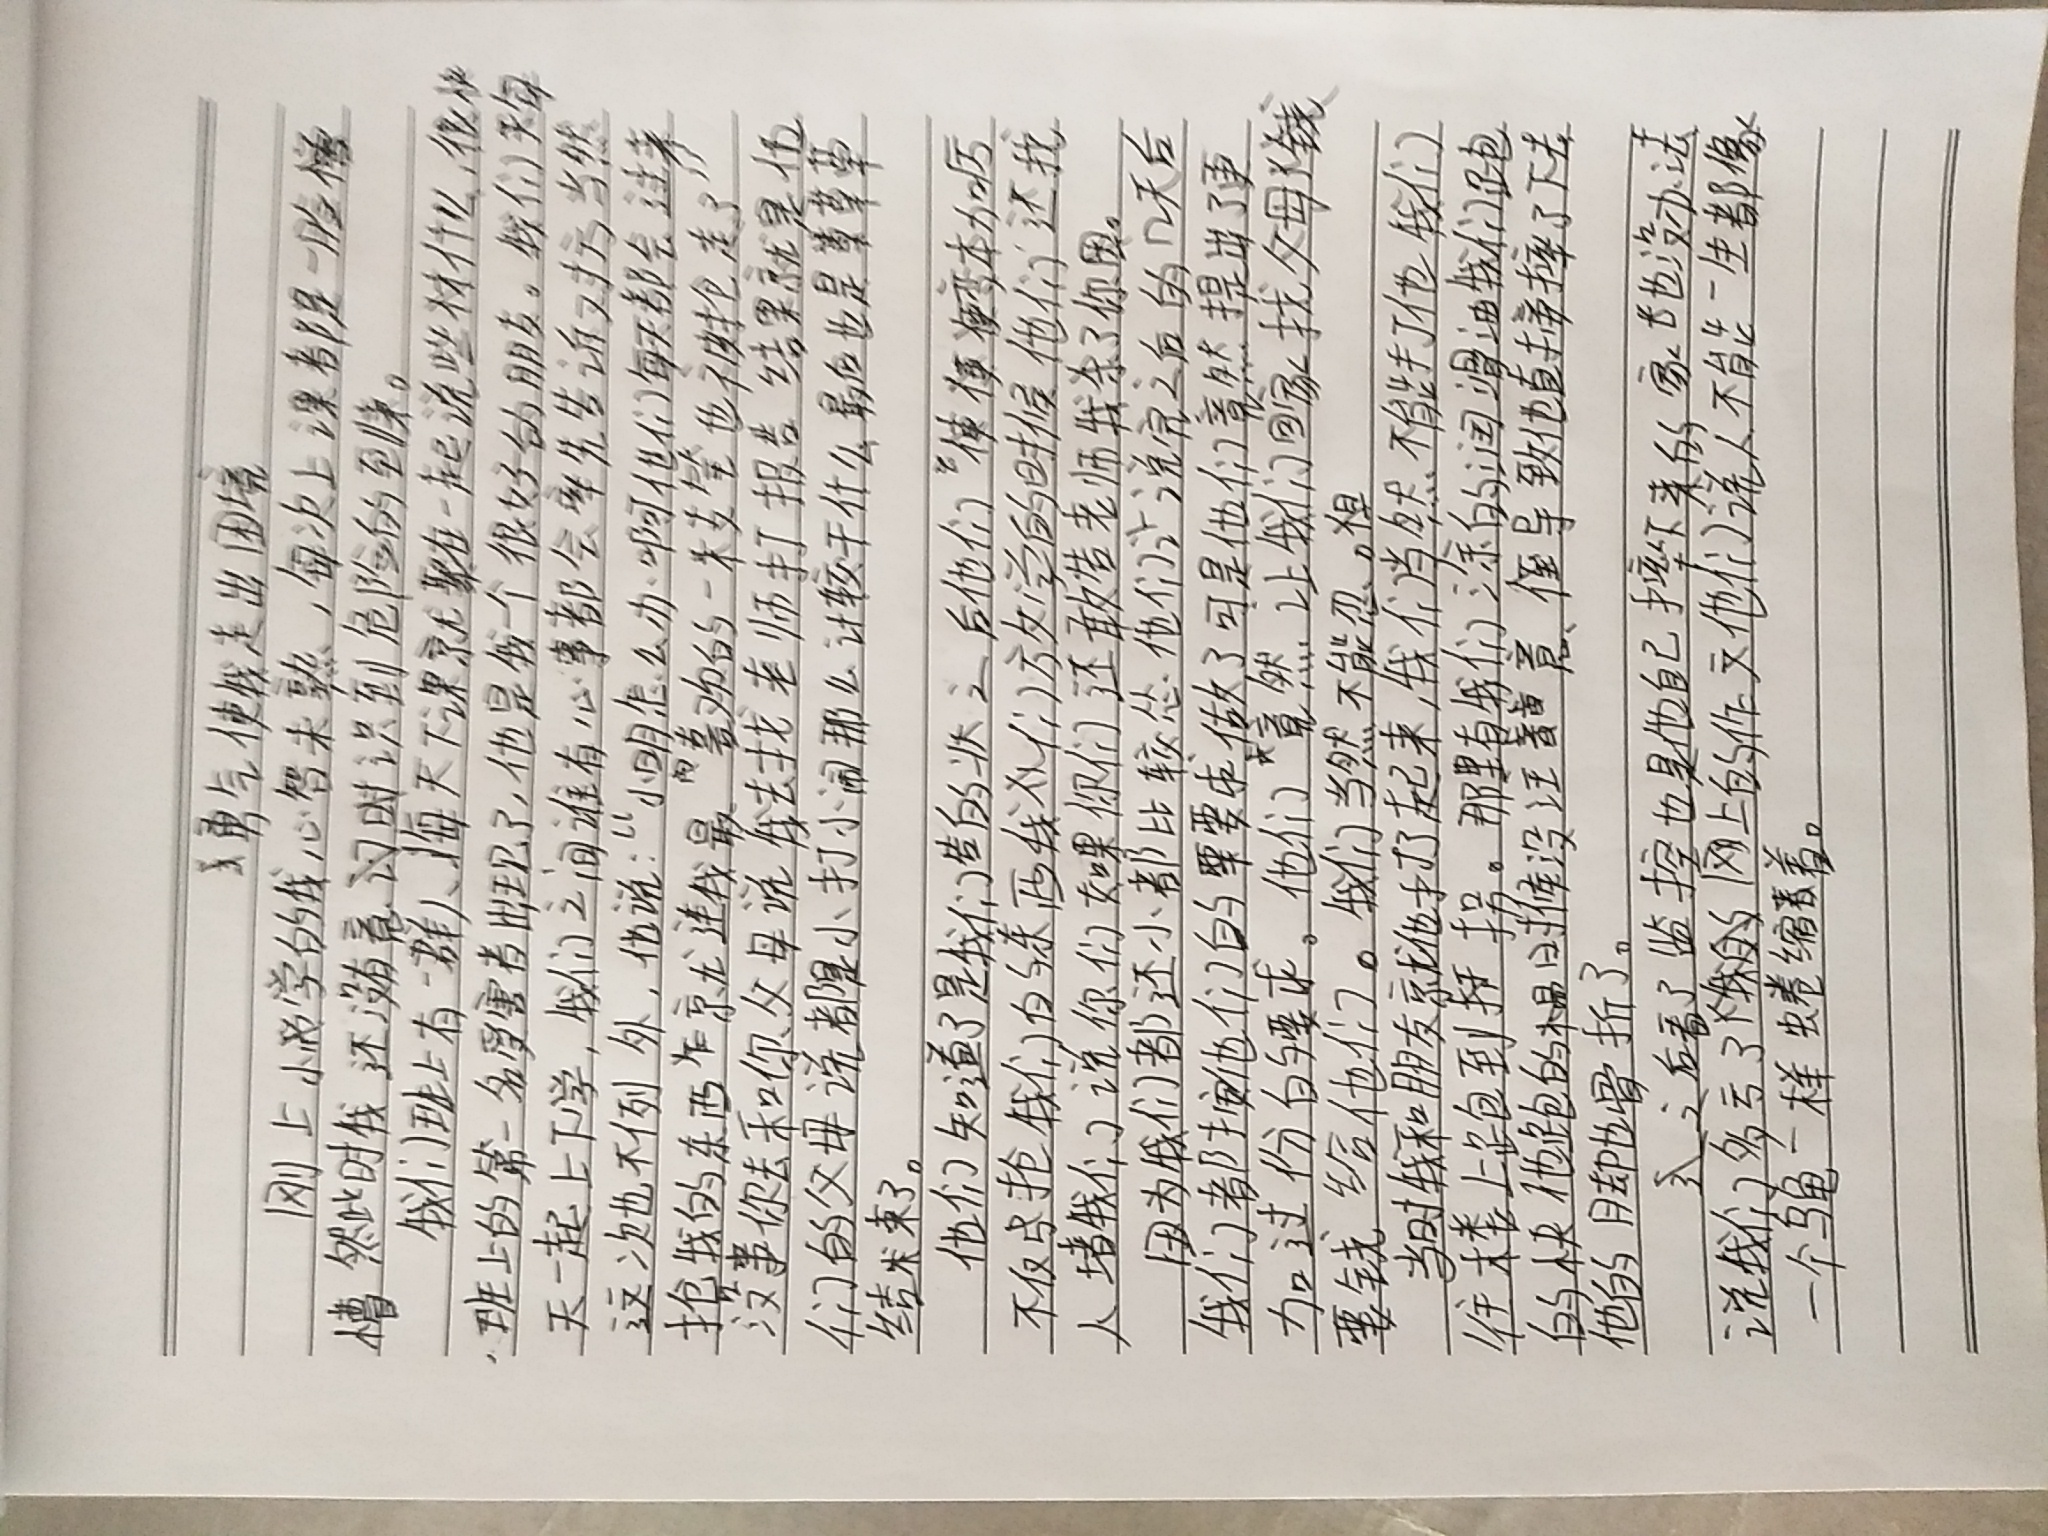 勇气使我走出困境
刚上小学的我心智未熟,每次上课都是一路懵
懵 然此时我还没有意识到危险的到来。
我们班上有一群人、每天下课就聚在一起说些材什么,很快
班上的第一名受害者出现了,他是我一个很好的朋友。我们天每
天一起上下学,我们之间谁有心事都会率先告诉对方 当然
这次也不例外,他说:“小明怎么办啊他们每天都会过来
抢我的东西 乍京尤连我最喜欢的一未支笔也不被抢走了
没事你去和你父母说 我去找老师打报告 结果就是他
们的父母说都是小打小闹那么计较干什么 最后也是草草
结束了。
他们知道了是我们告的状之后他们“使便变本加厉
不仅与抢我们的东西我从们方文学的时候他们还找
人堵我们说你们如果你们还敢告老师我杀了你思。
因为我们都还小都比较怂 他们说完之后的几天后
我们都按他们的要要求做做了可是他们竟然提出了更
加过份的要求。他们竟然让我们回家找父母要钱
要钱 给他们。我们当然不能忍。
当时我和朋友就他打了起来,我们当然不能打了他 我们
往楼上跑到拐拐。那里有我们涂的润滑油我们跑
的快他跑的 时候没注意、径导致他直接摔了下去
他的脚也骨折了。
之后看了监控也是他自己摔下来的 家长也没办法
说我们 多亏了 网上的作文他们说人不能一生都像
一个乌龟一样蜷缩着。